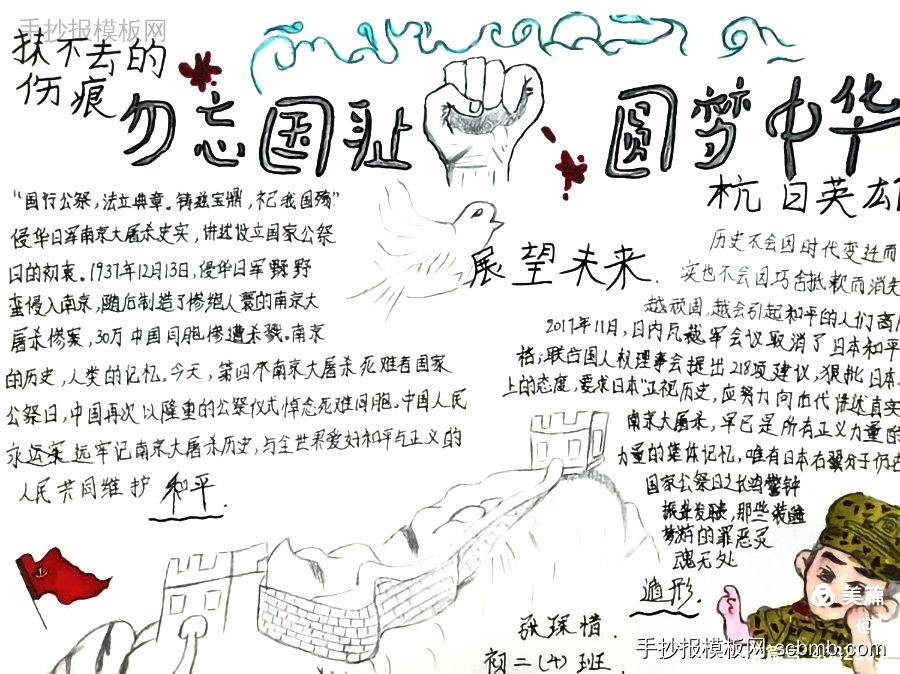 手抄报模板网
抹不去的
伤痕
勿忘国耻 圆梦中华
抗日英雄
“国行公祭，法立典章。铸兹宝鼎，祀我国殇”
侵华日军南京大屠杀史实，讲述设立国家公祭
日的初衷。1937年12月13日，侵华日军野野
蛮侵入南京，随后制造了惨绝人寰的南京大
屠杀惨案，30万中国同胞惨遭杀戮。南京
的历史，人类的记忆。今天，第四个南京大屠杀死难者国家
公祭日，中国再次以隆重的公祭仪式悼念死难同胞。中国人民
永远牢记南京大屠杀历史，与全世界爱好和平与正义的
人民共同维护 和平
展望未来
历史不会因时代变迁而
实也不会因巧舌抵赖而消失
越顽固，越会引起和平的人们高
2017年11月，日内瓦裁军会议取消了日本和平
档；联合国人权理事会提出218项建议，狠批日本
上的态度，要求日本正视历史，应努力向后代讲述真实
南京大屠杀，早已是所有正义力量的
力量的集体记忆，唯有日本右翼分子仍在
国家公祭日之长鸣警钟
振聋发聩，那些装睡
梦游的罪恶灵
魂无处
遁形
张琛惜
初二(4)班
美篇
手抄报模板网-scbmb.com